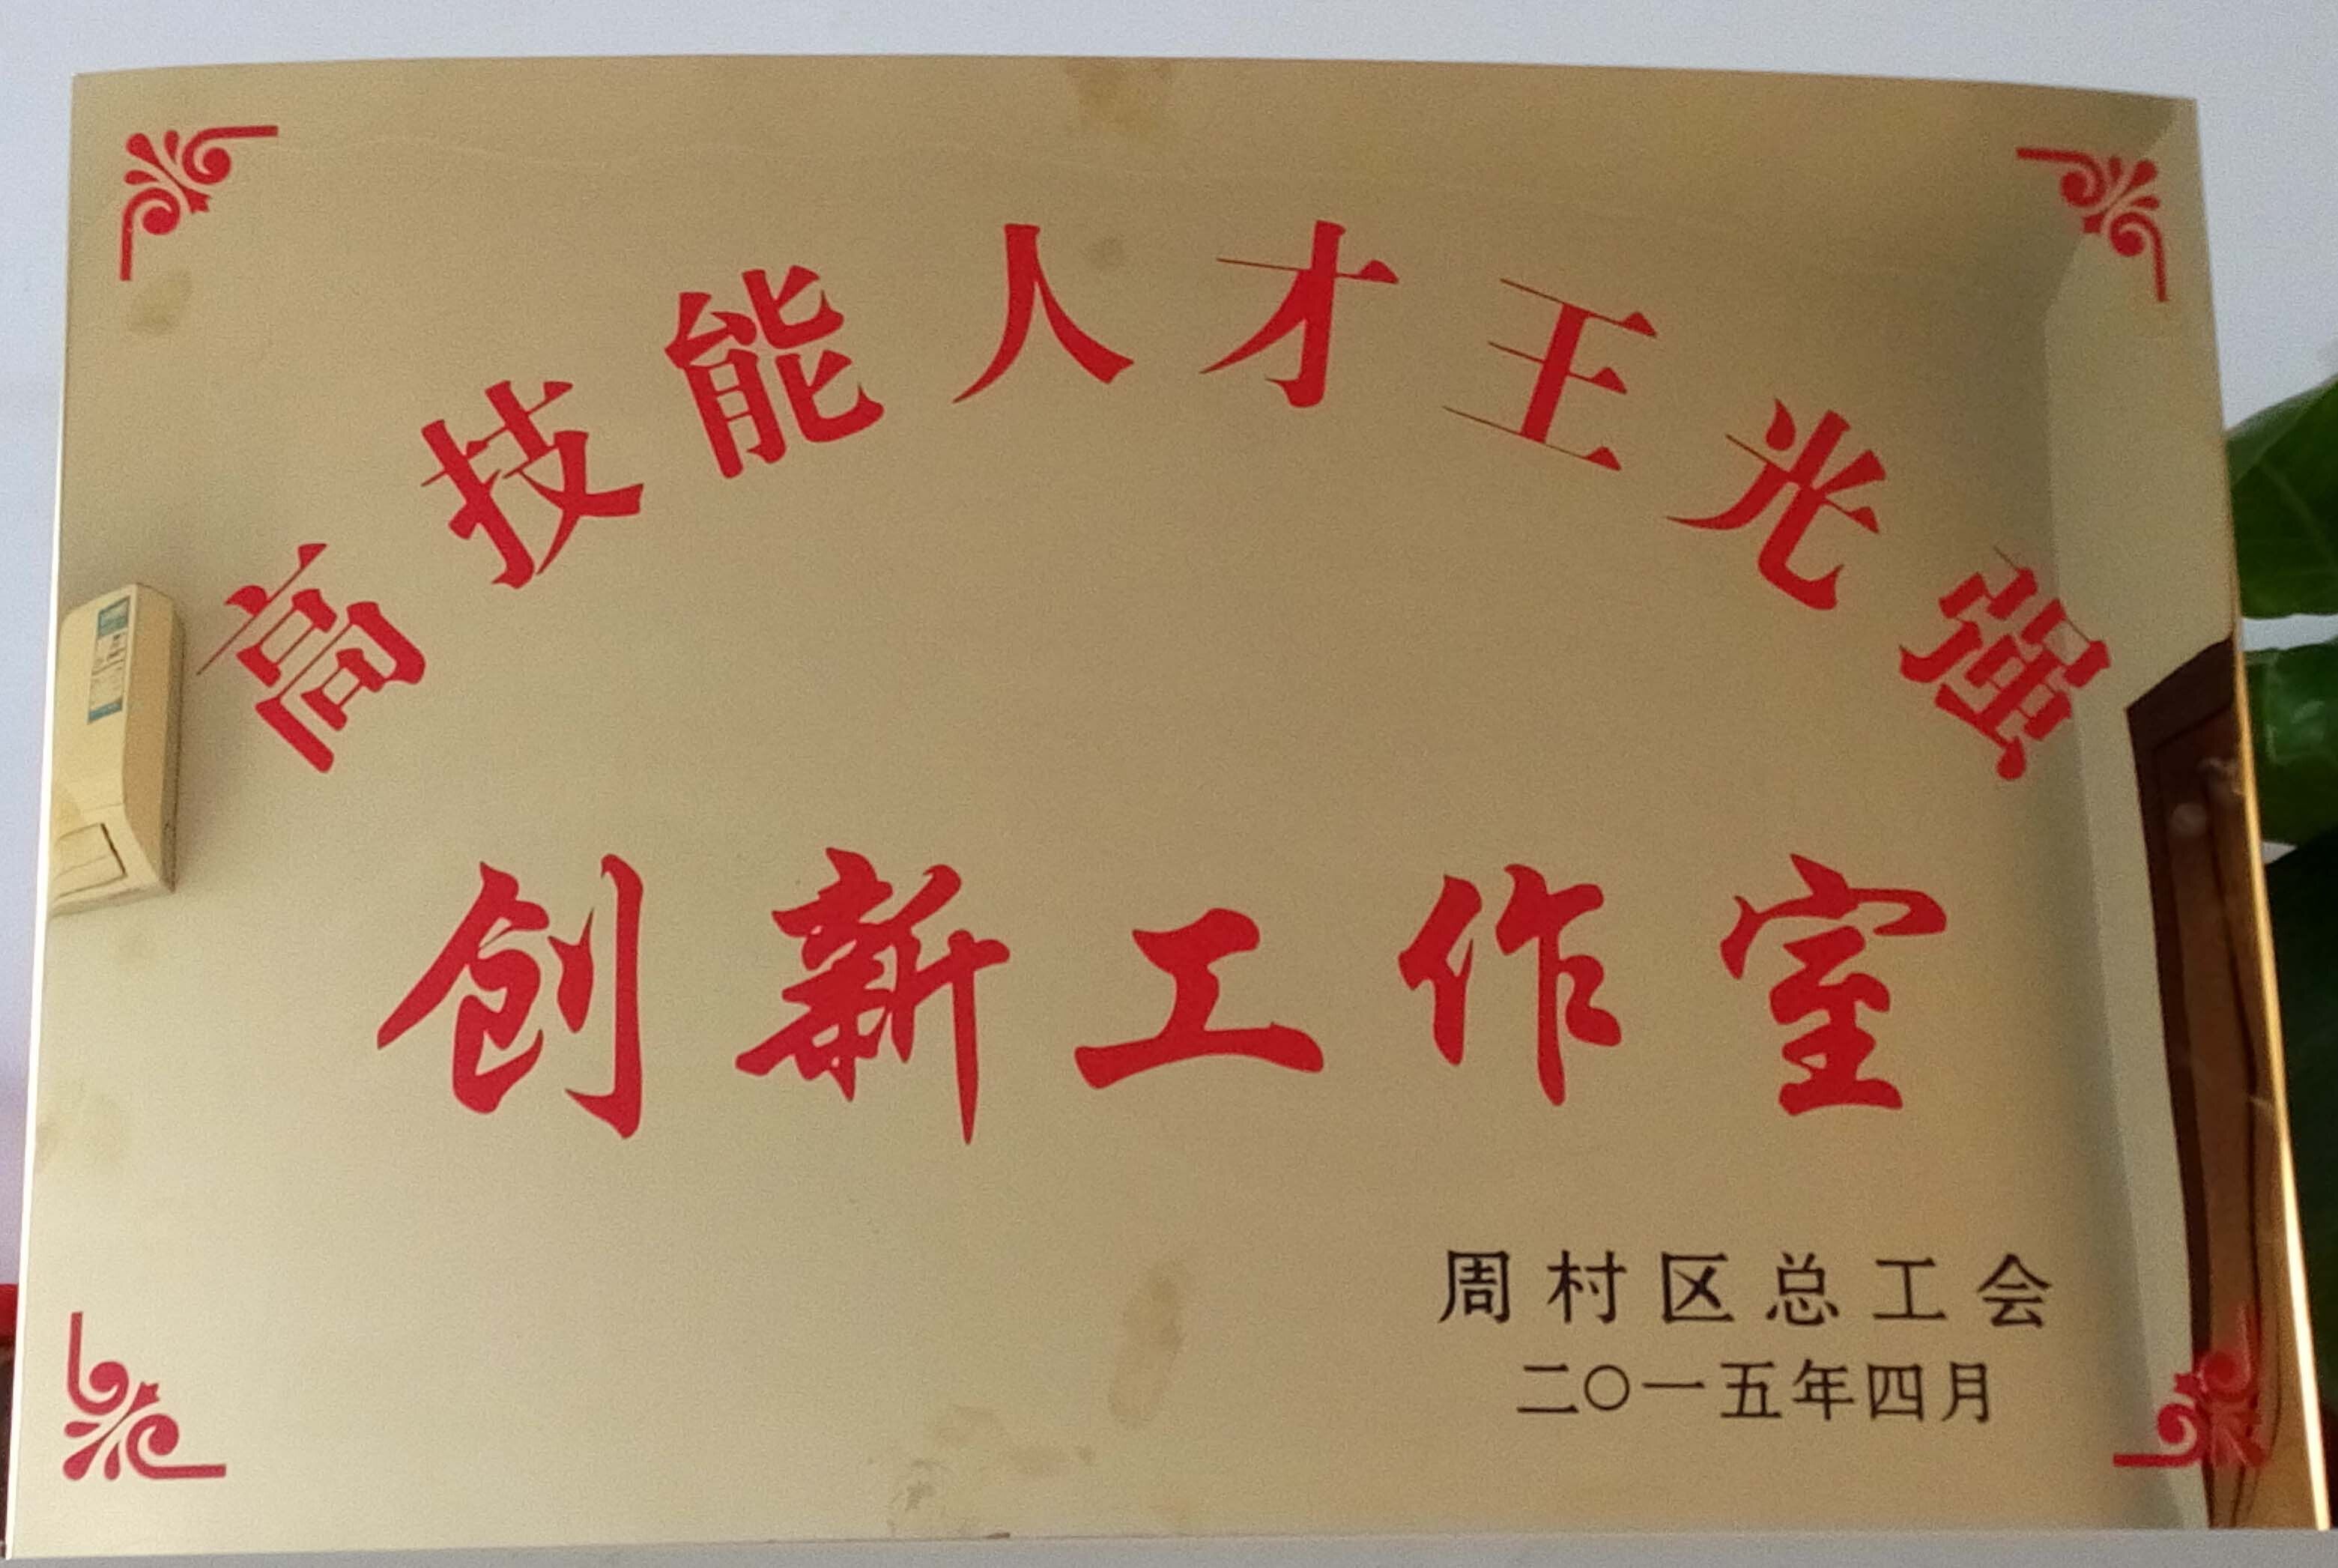 高技能人才王光强
创新工作室
周村区总工会
二〇一五年四月